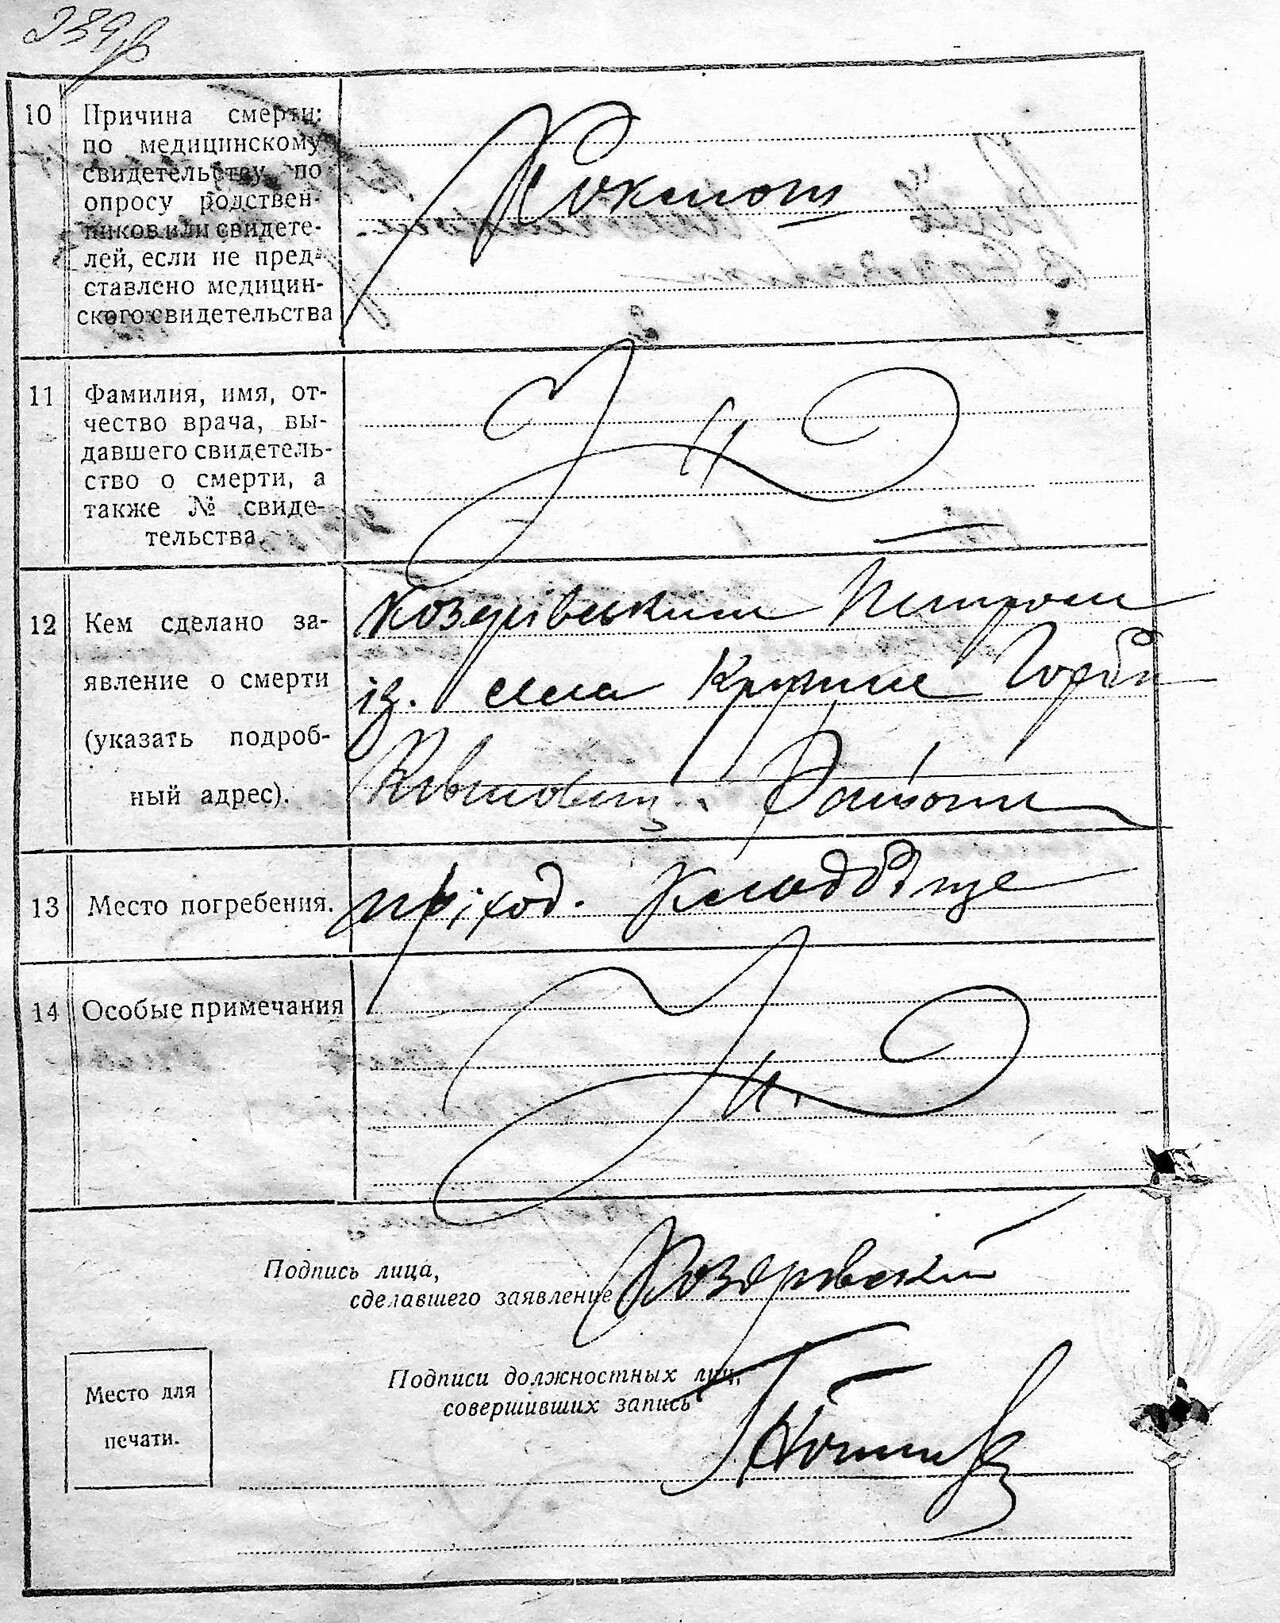 10 Причина смерти:
по медицинскому
свидетельству, по
опросу родствен-
ников или свидете-
лей, если не пред-
ставлено медицин-
ского свидетельства
Коклюш
11 Фамилия, имя, от-
чество врача, вы-
давшего свидетель-
ство о смерти, а
также № свиде-
тельства.
12 Кем сделано за-
явление о смерти
(указать подроб-
ный адрес).
Коздрівським Петром
із. села Крупие Горби
Району
13 Место погребения.
пріход. Кладбіще
14 Особые примечания
Подпись лица,
сделавшего заявление Коздровский
Подписи должностных лиц,
совершивших запись
Место для
печати.